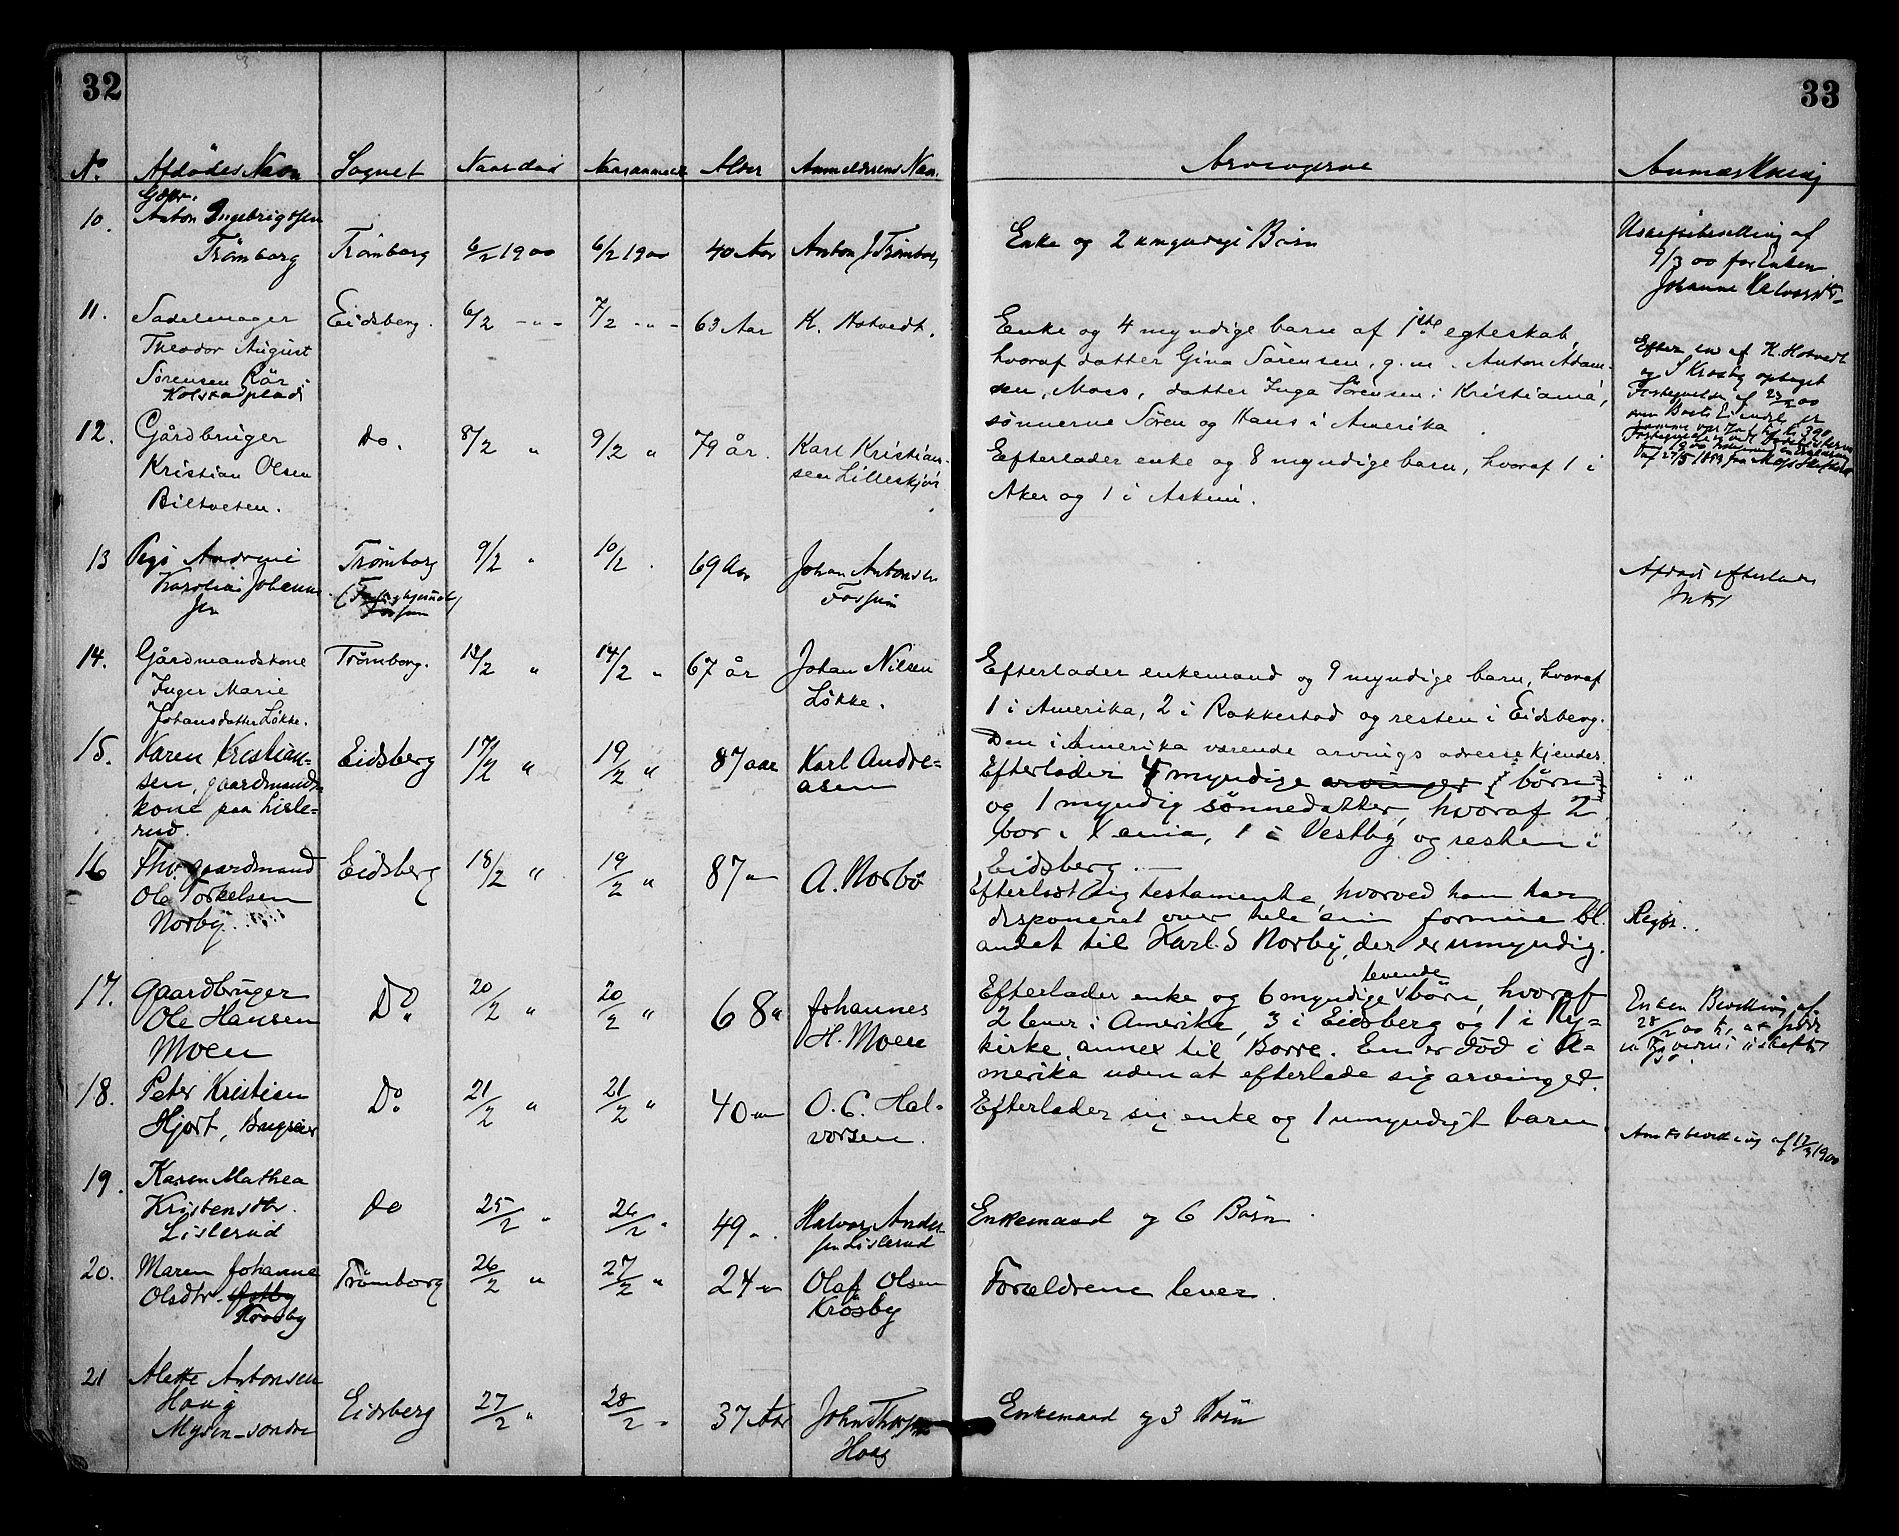 32
33
No. Afdødes Navn Sognet Naar død Naar anmeldt Alder Anmelderens Navn Arvingerne Anmærkning
10. Gbr. Anton Ingebrigtsen
Trömborg Trömborg 6/2 1900 6/2 1900 40 Aar Anton J Trömborg
Enke og 2 umyndige Börn
Uskiftebevilling af
9/3 00 for Enken
Johanne
11. Sadelmager
Theodor August
Sörensen Rör
Kolstadplads
Eidsberg. 6/2 -"- 7/2 -"- 63 Aar K. Hotvedt.
Enke og 4 myndige barn af 1ste egteskab,
hvoraf datter Gina Sörensen, g.m. Anton Adam-
sen, Moss, datter Inga Sörensen i Kristiania,
sönnerne Sören og Hans i Amerika
Efter en af K. Hotvedt
og S Krosby optaget
12. Gårdbruger
Kristian Olsen
Biltveten.
Do. 8/2 " 9/2 " 79 år. Karl Kristian-
sen Lilleskjör
Efterlader enke og 8 myndige barn, hvoraf 1 i
Aker og 1 i Askim.
13 Pige Andrine
Karoline Johannes
sen
Trömborg
Fossum
9/2 " 10/2 . 69 Aar Johan Antonsen
Fossum
Afdöde efterlader
Intet
14. Gårdmandskone
Inger Marie
Johansdatter Løkke.
Trömborg. 13/2 " 14/2 " 67 år Johan Nilsen
Løkke.
Efterlader enkemand og 9 myndige barn, hvoraf
1 i Amerika, 2 i Rakkestad og resten i Eidsberg.
Den i Amerika værende arvings adresse kjendes
15. Karen Kristian-
sen, gaardmands-
kone paa Lisle-
rud.
Eidsberg 17/2 " 19/2 " 87 aar Karl Andre-
asen
Efterlader 4 myndige arvinger börn
og 1 myndig sönnedatter, hvoraf 2
bor i Xania, 1 i Vestby og resten i
Eidsberg.
16 Fhv. gaardmand
Ole Torkelsen
Norby.
Eidsberg 18/2 " 19/2 " 87 " A. Norbö
Efterlod sig testamente, hvorved han har
disponeret over hele sin formue bl.
andet til Karl S Norby, der er umyndig.
Regr.
17. Gaardbruger
Ole Hansen
Moen
Do 20/2 " 20/2 " 68 " Johannes
H. Moen
Efterlader enke og 6 myndige levende börn, hvoraf
2 lever i Amerika, 3 i Eidsberg og 1 i Ny-
kirke, annex til Borre. En er död i A-
merika uden at efterlade sig arvinger.
Enken Bevilling af
28/2 00
18. Peter Kristian
Hjort,
Do 21/2 " 21/2 " 40 " O. C. Hal-
vorsen.
Efterlader sig enke og 1 umyndigt barn
Amtsbevilling af 17/3 1900
19. Karen Mathea
Kristensdtr.
Lislerud
Do 25/2 " 26/2 " 49 " Halvor Ander-
sen Lislerud
Enkemand og 6 Börn
20. Maren Johanne
Olsdtr. Östby
Krosby
Trömborg 26/2 " 27/2 " 24 " Olaf Olsen
Krosby
Forældrene lever.
21 Alette Antonsen
Haug
Mysen söndre
Eidsberg 27/2 " 28/2 " 37 Aar John Thorsen
Haug
Enkemand og 3 Börn